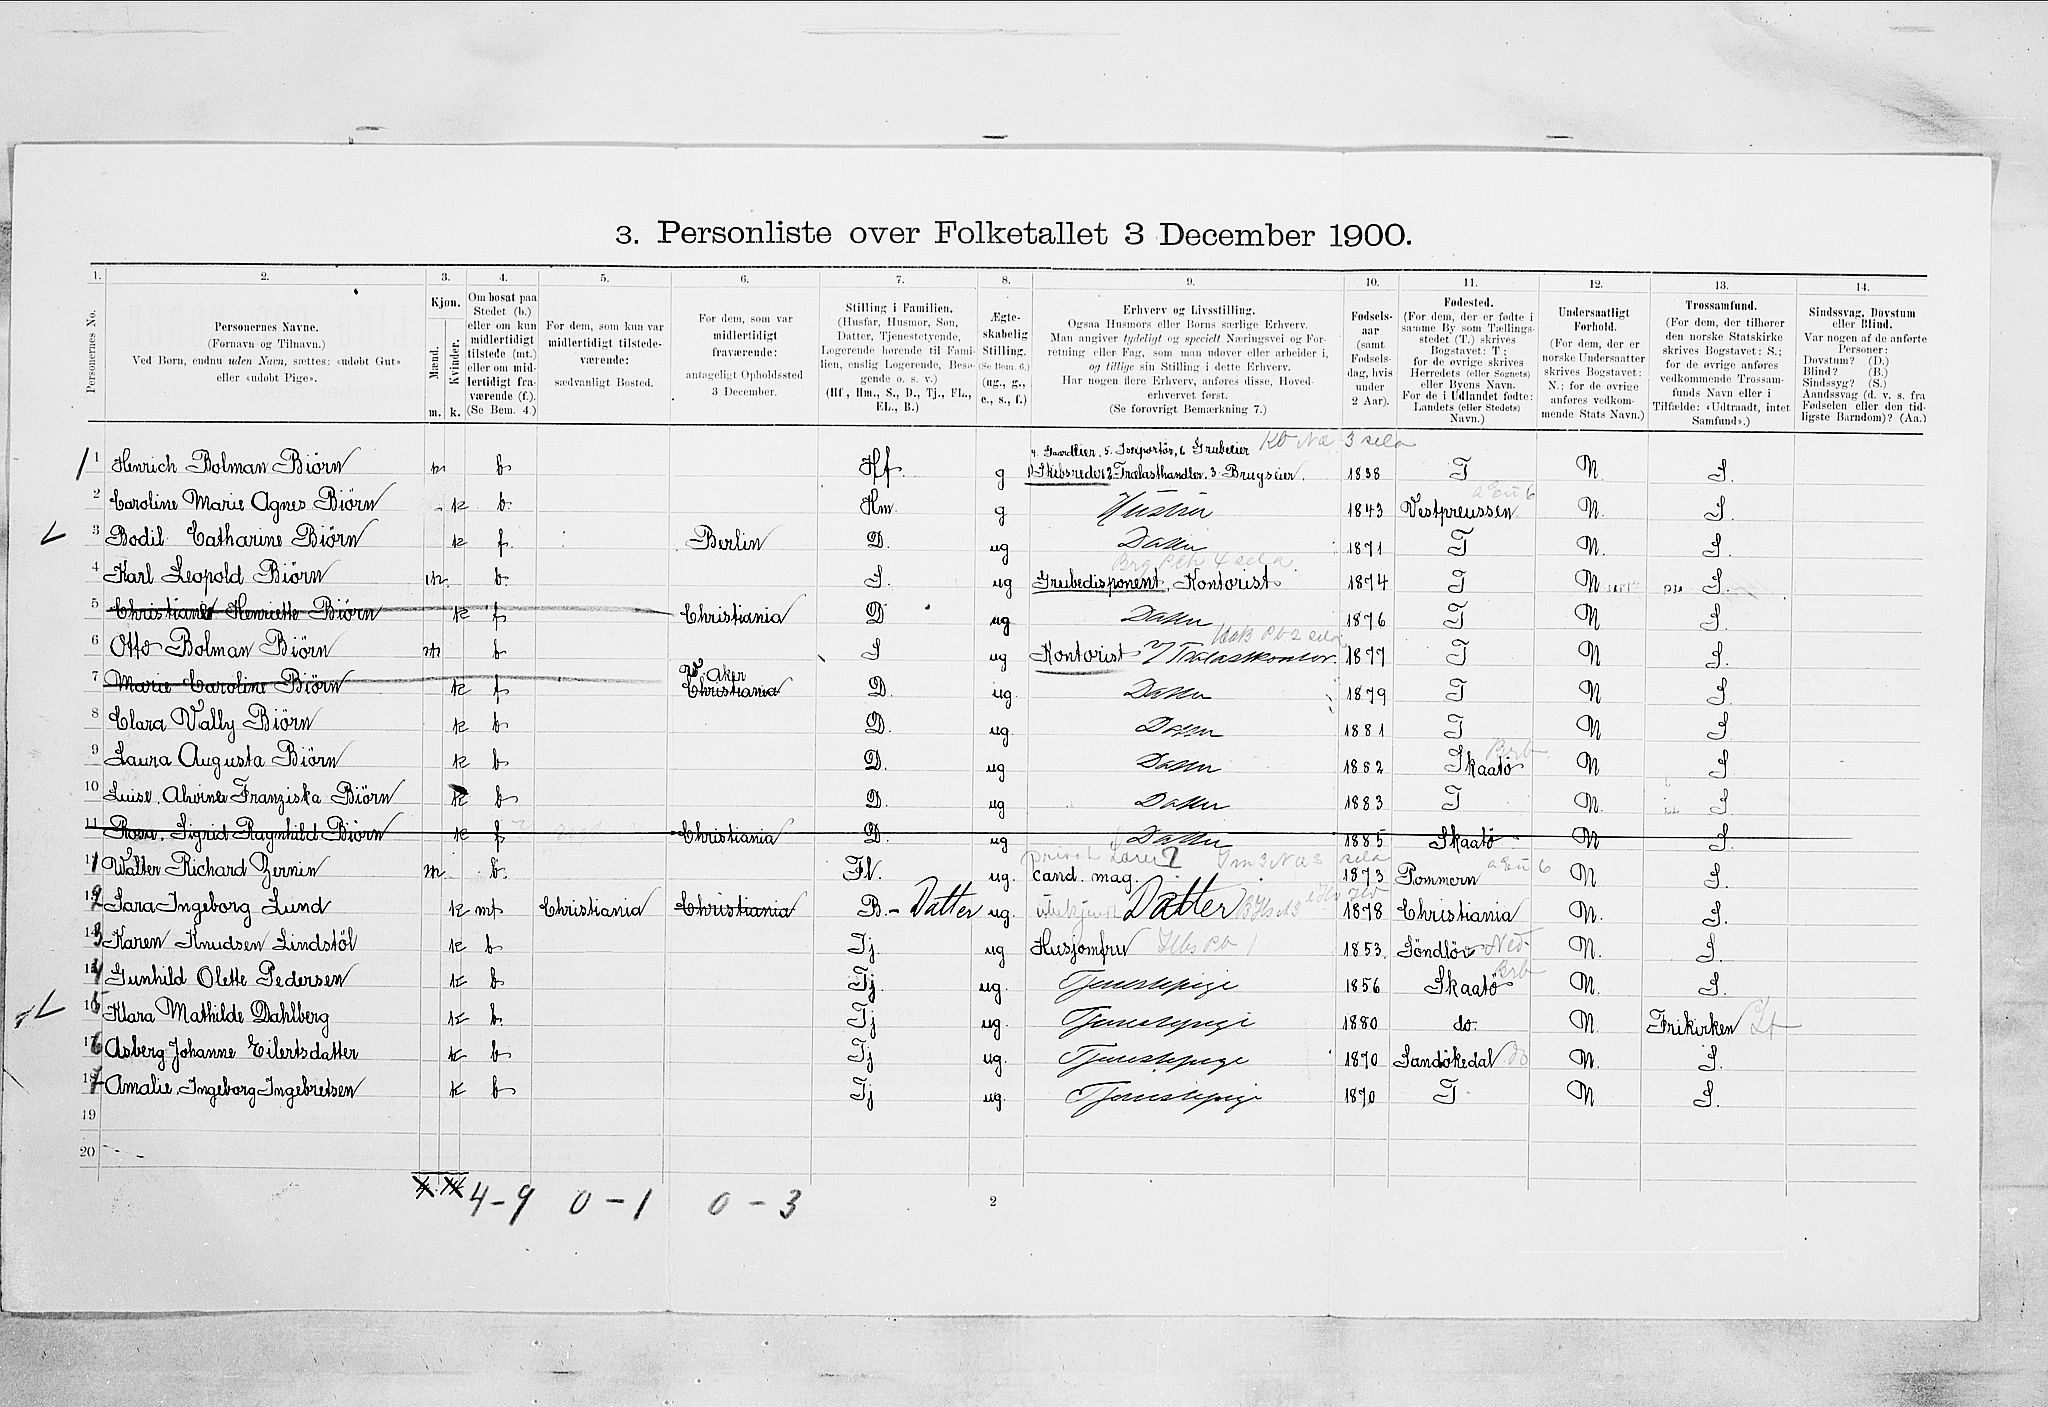 3. Personliste over Folketallet 3 December 1900.
1. 2. 3. 4. 5. 6. 7. 8. 9. 10. 11. 12. 13. 14.
Personernes No.
Personernes Navne.
(Fornavn og Tilnavn.)
Ved Børn, endnu uden Navn, sættes: «udøbt Gut»
eller «udøbt Pige».
Kjøn.
Mænd.
Kvinder.
m. k.
Om bosat paa
Stedet (b.)
eller om kun
midlertidigt
tilstede (mt.)
eller om mid-
lertidigt fra-
værende (f.).
(Se Bem. 4.)
For dem, som kun var
midlertidigt tilstede-
værende:
sædvanligt Bosted.
For dem, som var
midlertidigt
fraværende:
antageligt Opholdssted
3 December.
Stilling i Familien.
(Husfar, Husmor, Søn,
Datter, Tjenestetyende,
Logerende hørende til Fami-
lien, enslig Logerende, Besø-
gende o. s. v.)
(Hf, Hm., S., D., Tj., FL.,
EL., B.)
Ægte-
skabelig
Stilling.
(Se Bem. 6.)
(ug., g.,
e., s., f.)
Erhverv og Livsstilling.
Ogsaa Husmors eller Børns særlige Erhverv.
Man angiver tydeligt og specielt Næringsvei og For-
retning eller Fag, som man udøver eller arbeider i,
og tillige sin Stilling i dette Erhverv.
Har nogen flere Erhverv, anføres disse, Hoved-
erhvervet først.
(Se forøvrigt Bemærkning 7.)
Fødsels-
aar
(samt
Fødsels-
dag, hvis
under
2 Aar).
Fødested.
(For dem, der er fødte i
samme By som Tællings-
stedet (T.) skrives
Bogstavet: T;
for de øvrige skrives
Herredets (eller Sognets)
eller Byens Navn.
For de i Udlandet fødte:
Landets (eller Stedets)
Navn.)
Undersaatligt
Forhold.
(For dem, der er
norske Undersaatter
skrives Bogstavet:
N.; for de øvrige
anføres vedkom-
mende Stats Navn.)
Trossamfund.
(For dem, der tilhører
den norske Statskirke
skrives Bogstav: S.;
for de øvrige anføres
vedkommende Trossam-
funds Navn eller i
Tilfælde: «Udtraadt, intet
Samfund».)
Sindssvag, Døvstum
eller Blind.
Var nogen af de anførte
Personer:
Døvstum? (D.)
Blind? (B.)
Sindssyg? (S.)
Aandssvag (d. v. s. fra
Fødselen eller den tid-
ligste Barndom)? (Aa.)
4. Gaardeier, 5. Inspektør, 6 Grubeier
1 Henrich Bolman Biørn m b Hf. g 1 Skibsreder 2 Trælasthandler. 3 Brugseier. 1838 T N S.
2 Caroline Marie Agnes Biørn k b. Hm. g Hustru 1843 Vestpreussen N. S.
3 Bodil Catharine Biørn k f. Berlin D. ug Datter 1871 T N. S.
4 Karl Leopold Biørn m. b. S. ug Grubedisponent, Kontorist 1874 T N S.
5 Christiane Henriette Biørn k f Christiania D ug Datter 1876 T N S.
6 Otto Bolman Biørn m b S ug Kontorist Trælastkontor 1877 T N S.
V. Aker
7 Marie Caroline Biørn k f Christiania D. ug. Datter 1879 T N S.
8 Clara Vally Biørn k b D. ug. Datter 1881 T N S
9 Laura Augusta Biørn k b D. ug Datter 1882 Skaatö N S
10 Luise, Alvine Franziska Biørn k b D. ug Datter 1883 T N. S
11 Rosa, Sigrid Ragnhild Biørn k f Christiania D. ug Datter 1885 Skaatö N S
11 Walter Richard Zernin m. b. Fl. ug. cand. mag. 1873 Pommern N S.
12 Sara Ingeborg Lund k mt Christiania Christiania B. - Datter ug. Datter 1878 Christiania N S.
13 Karen Knudsen Lindstöl k b Tj. ug Husjomfru 1853. Söndlöv N. S.
14 Gunhild Olette Pedersen k b Tj. ug. Tjenestepige 1856 Skaatö N. S.
15 Klara Mathilde Dahlberg k b. Tj ug. Tjenestepige 1880 do. N. Frikirken
16 Asberg Johanne Eilertsdatter k b Tj ug. Tjenestepige 1870 Sandökedal N. S.
17 Amalie, Ingeborg Ingebretsen k b Tj ug. Tjenestepige 1870 T N S.
19
20
4-9 0-1 0-3
2